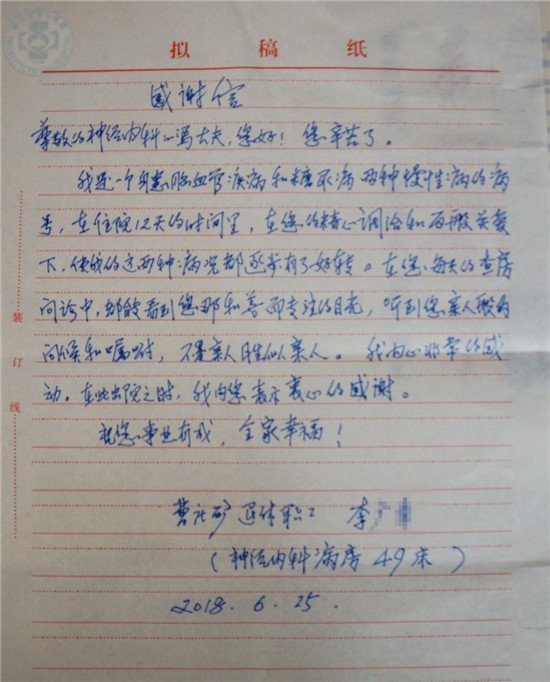 拟稿纸
感谢信
尊敬的神经内科冯大夫,您好!您辛苦了。
我是一个身患脑血管疾病和糖尿病两种慢性病的病
号,在住院12天的时间里,在您的精心调治和百般关爱
下,使我的这两种病况都逐步有了好转。在您每天的查房
问诊中,都能看到您那和善而专注的目光,听到您亲人般的
问候和嘱咐,不是亲人胜似亲人。我内心非常的感
动。在此出院之时,我向您表示衷心的感谢。
祝您事业有成,全家幸福!
退休职工 李
(神经内科病房49床)
2018.6.25.
装订线